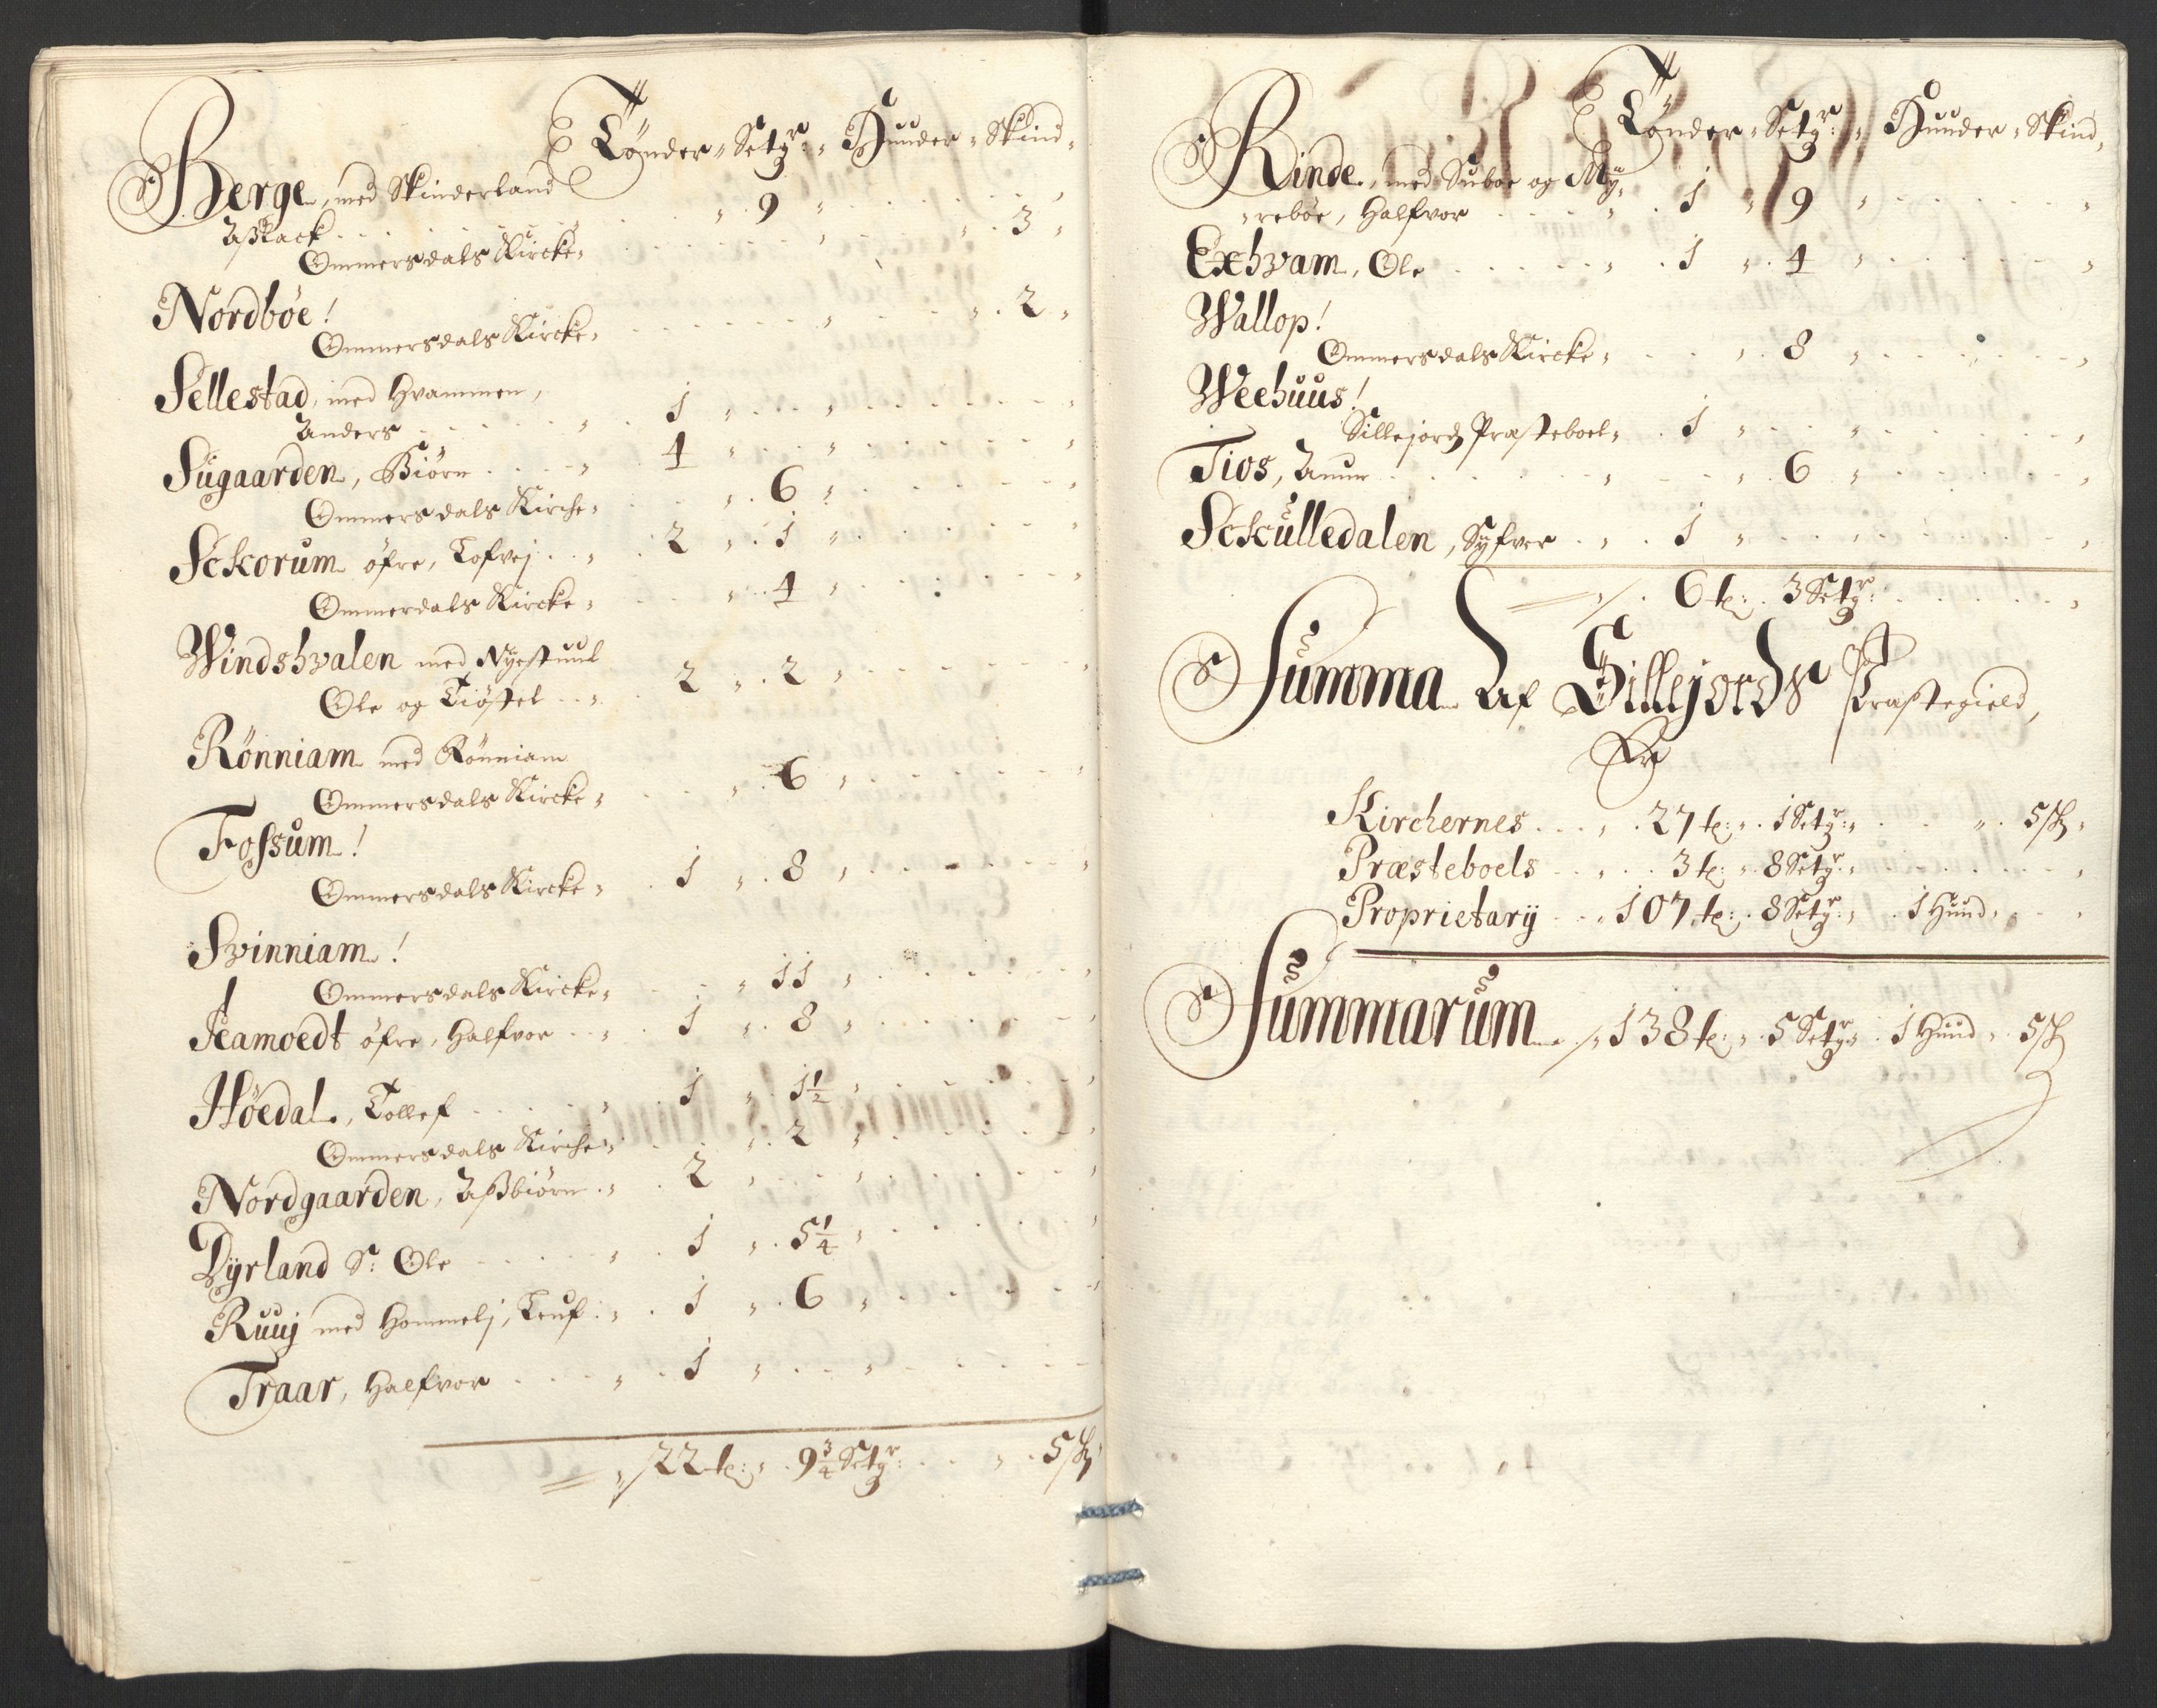 Tönder „ Setgr: „ Huuder „ Skind „
Berge, med Skinderland
Aßlack . . . „ 9 „ . . . „
Ommersdals Kircke „ . . . „ . . . „ 3 „
Nordböe!
Ommersdals Kircke „ . . . „ . . . „ 2 „
Sellestad, med Hvammen,
Anders . . . „ 1 „ . . „ . . . „
Sügaarden, Biörn . . . „ 4 „ . . „ . . . „
Ommersdals Kirche „ . . „ 6 „ . . . „
Sckorum öfre, Tofvej . . „ 2 „ 1 „ . . . „
Ommerdals Kircke „ . . „ 4 „ . . . „
Windshvalen med Nyestuul
Ole og Kiöstel . . „ 2 „ 2 „ . . . „
Rönniam med Rönniam
Ommersdals Kircke „ . . „ 6 „ . . . „
Fossum!
Ommersdals Kircke „ . 1 „ 8 „ . . . „
Svinniam!
Ommersdals Kircke „ . . „ 11 „ . . . „
Aamoedt öfre, Halfvor . . „ 1 „ 8 „ . . . „
Höedal, Tollef . . . „ 1 „ 1½ „ . . . „
Ommersdals Kirche „ . . „ 2 „ . . . „
Nordgaarden, Aßbiörn . „ 2 „ . . „ . . . „
Dyrland S: Ole . . . „ 1 „ 5¼ „ . . . „
Ruuj med Hommelj, Leuf . „ 1 „ 6 „ . . . „
Traar, Halfvor . . . „ 1 „ . . „ . . .
„ 22 t: „ 9¾ Setgr: . . „ . 5 sk „
Tönder „ Setgr: „ Huuder „ Skind „
Rinde, med Suboe og My-
reböe, Halfvor . . . „ 1 „ 9 „ . . . „
Exhvam, Ole . . . „ 1 „ 4 „ . . . „
Wallop!
Ommersdals Kircke „ . . „ 8 „ . . . „
Weehuus!
Sillejords Præsteboel „ . 1 „ . . „ . . . „
Tios, Anun . . . „ . . „ 6 „ . . . „
Sckulledalen, Syfver . „ 1 „ . . „ . . . „
6 t: . 3 Setgr: . . . „
Summa Af Sillejords Præstegield,
Er
Kirchernes . . „ 27 t: „ 1 Setgr: „ . . „ 5 sk „
Præsteboels . . „ 3 t: „ 8 Setgr: „ . . . „
Proprietarÿ . . „ 107 t: . 8 Setgr: „ 1 Huud „ . „
Summarum „ 138 t: „ 5 Setgr: „ 1 Huud „ 5 sk